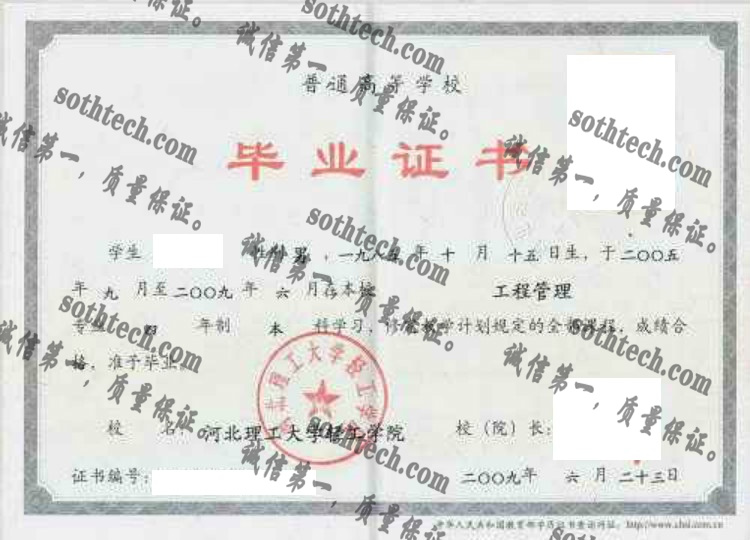 普通高等学校
毕业证书
学生 性别 男 ，一九八五 年 十 月 十五日生，于二〇〇五
年 九 月至二〇〇九 年 六 月在本校 工程管理
专业 四 年制 本 科学习，修完教学计划规定的全部课程，成绩合
格，准予毕业。
校 名：河北理工大学轻工学院 校（院）长：
证书编号： 二〇〇九年 六 月 二十三日
中华人民共和国教育部学历证书查询网址：http://www.chsi.com.cn
河北理工大学轻工学院
sothtech.com
诚信第一，质量保证。
sothtech.com
诚信第一，质量保证。
sothtech.com
诚信第一，质量保证。
sothtech.com
诚信第一，质量保证。
sothtech.com
诚信第一，质量保证。
sothtech.com
诚信第一，质量保证。
sothtech.com
诚信第一，质量保证。